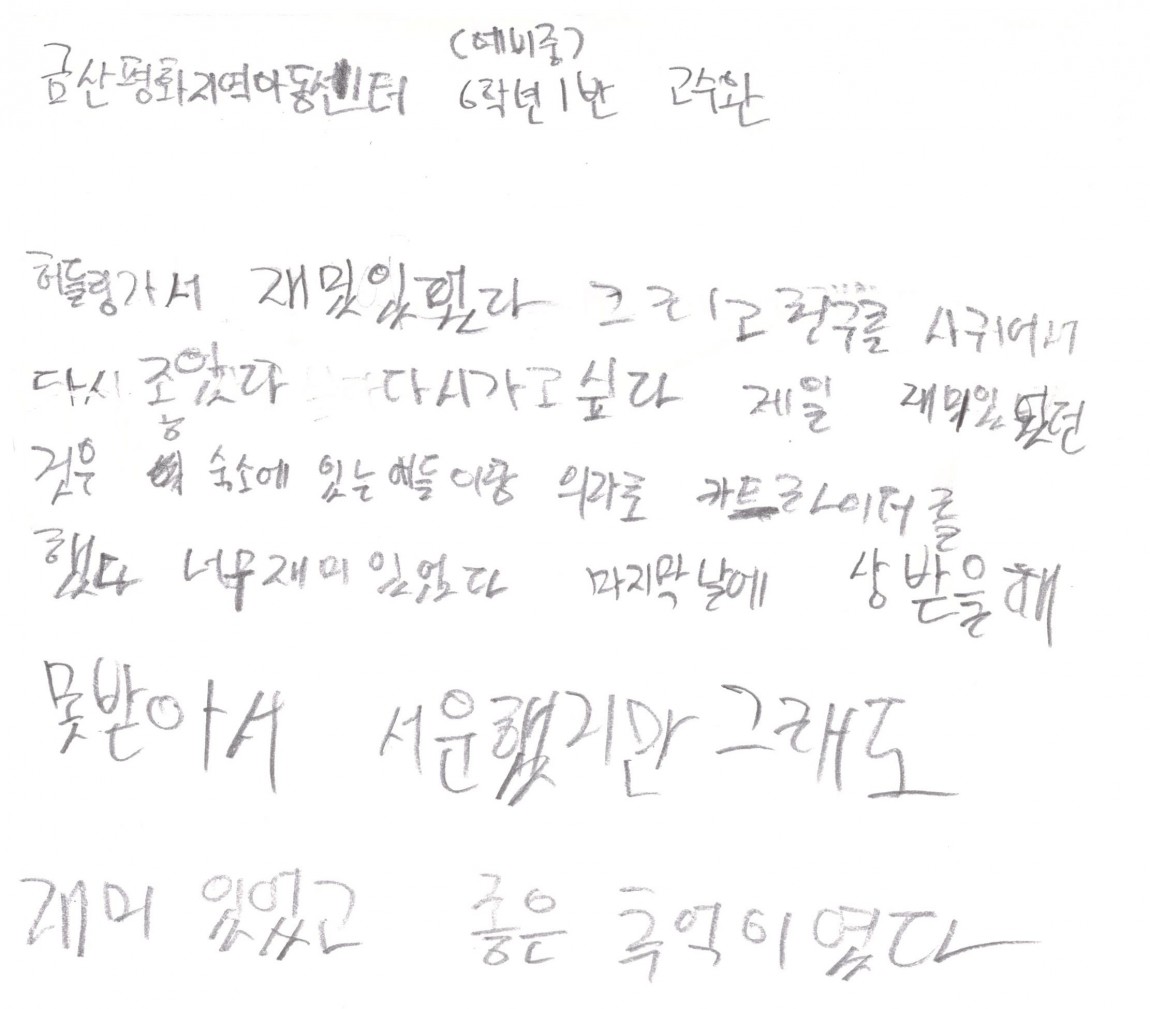 (예비중)
금산평화지역아동센터 6학년1반 고수완
허들링가서 재밌있였다 그리고 친구를 사귀어서
다시 좋았다 다시가고싶다 제일 재미있었던
것은 숙소에 있는 애들이랑 의라로 카트라이더를
했다 너무재미있었다 마지막날에 상받을때
못받아서 서운했지만그래도
재미있었고 좋은 추억이였다